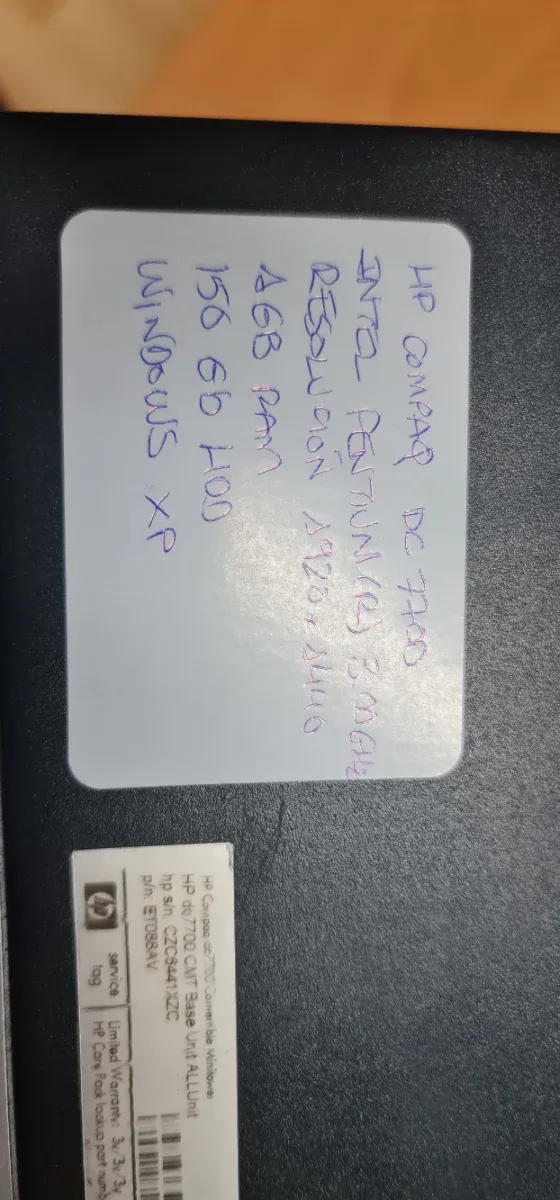 HP COMPAQ DC 7700
INTEL PENTIUM(R) 3.00GHz
RESOLUCIÓN 1920x1440
1GB RAM
150 Gb HDD
WINDOWS XP
HP Compaq dc7700 Convertible Minitower
HP dc7700 CMT Base Unit ALLUnit
hp s/n: CZC6441XZC
p/n: ET088AV
hp
service tag
Limited Warranty: 3y/3y/3y
HP Care Pack lookup part numb